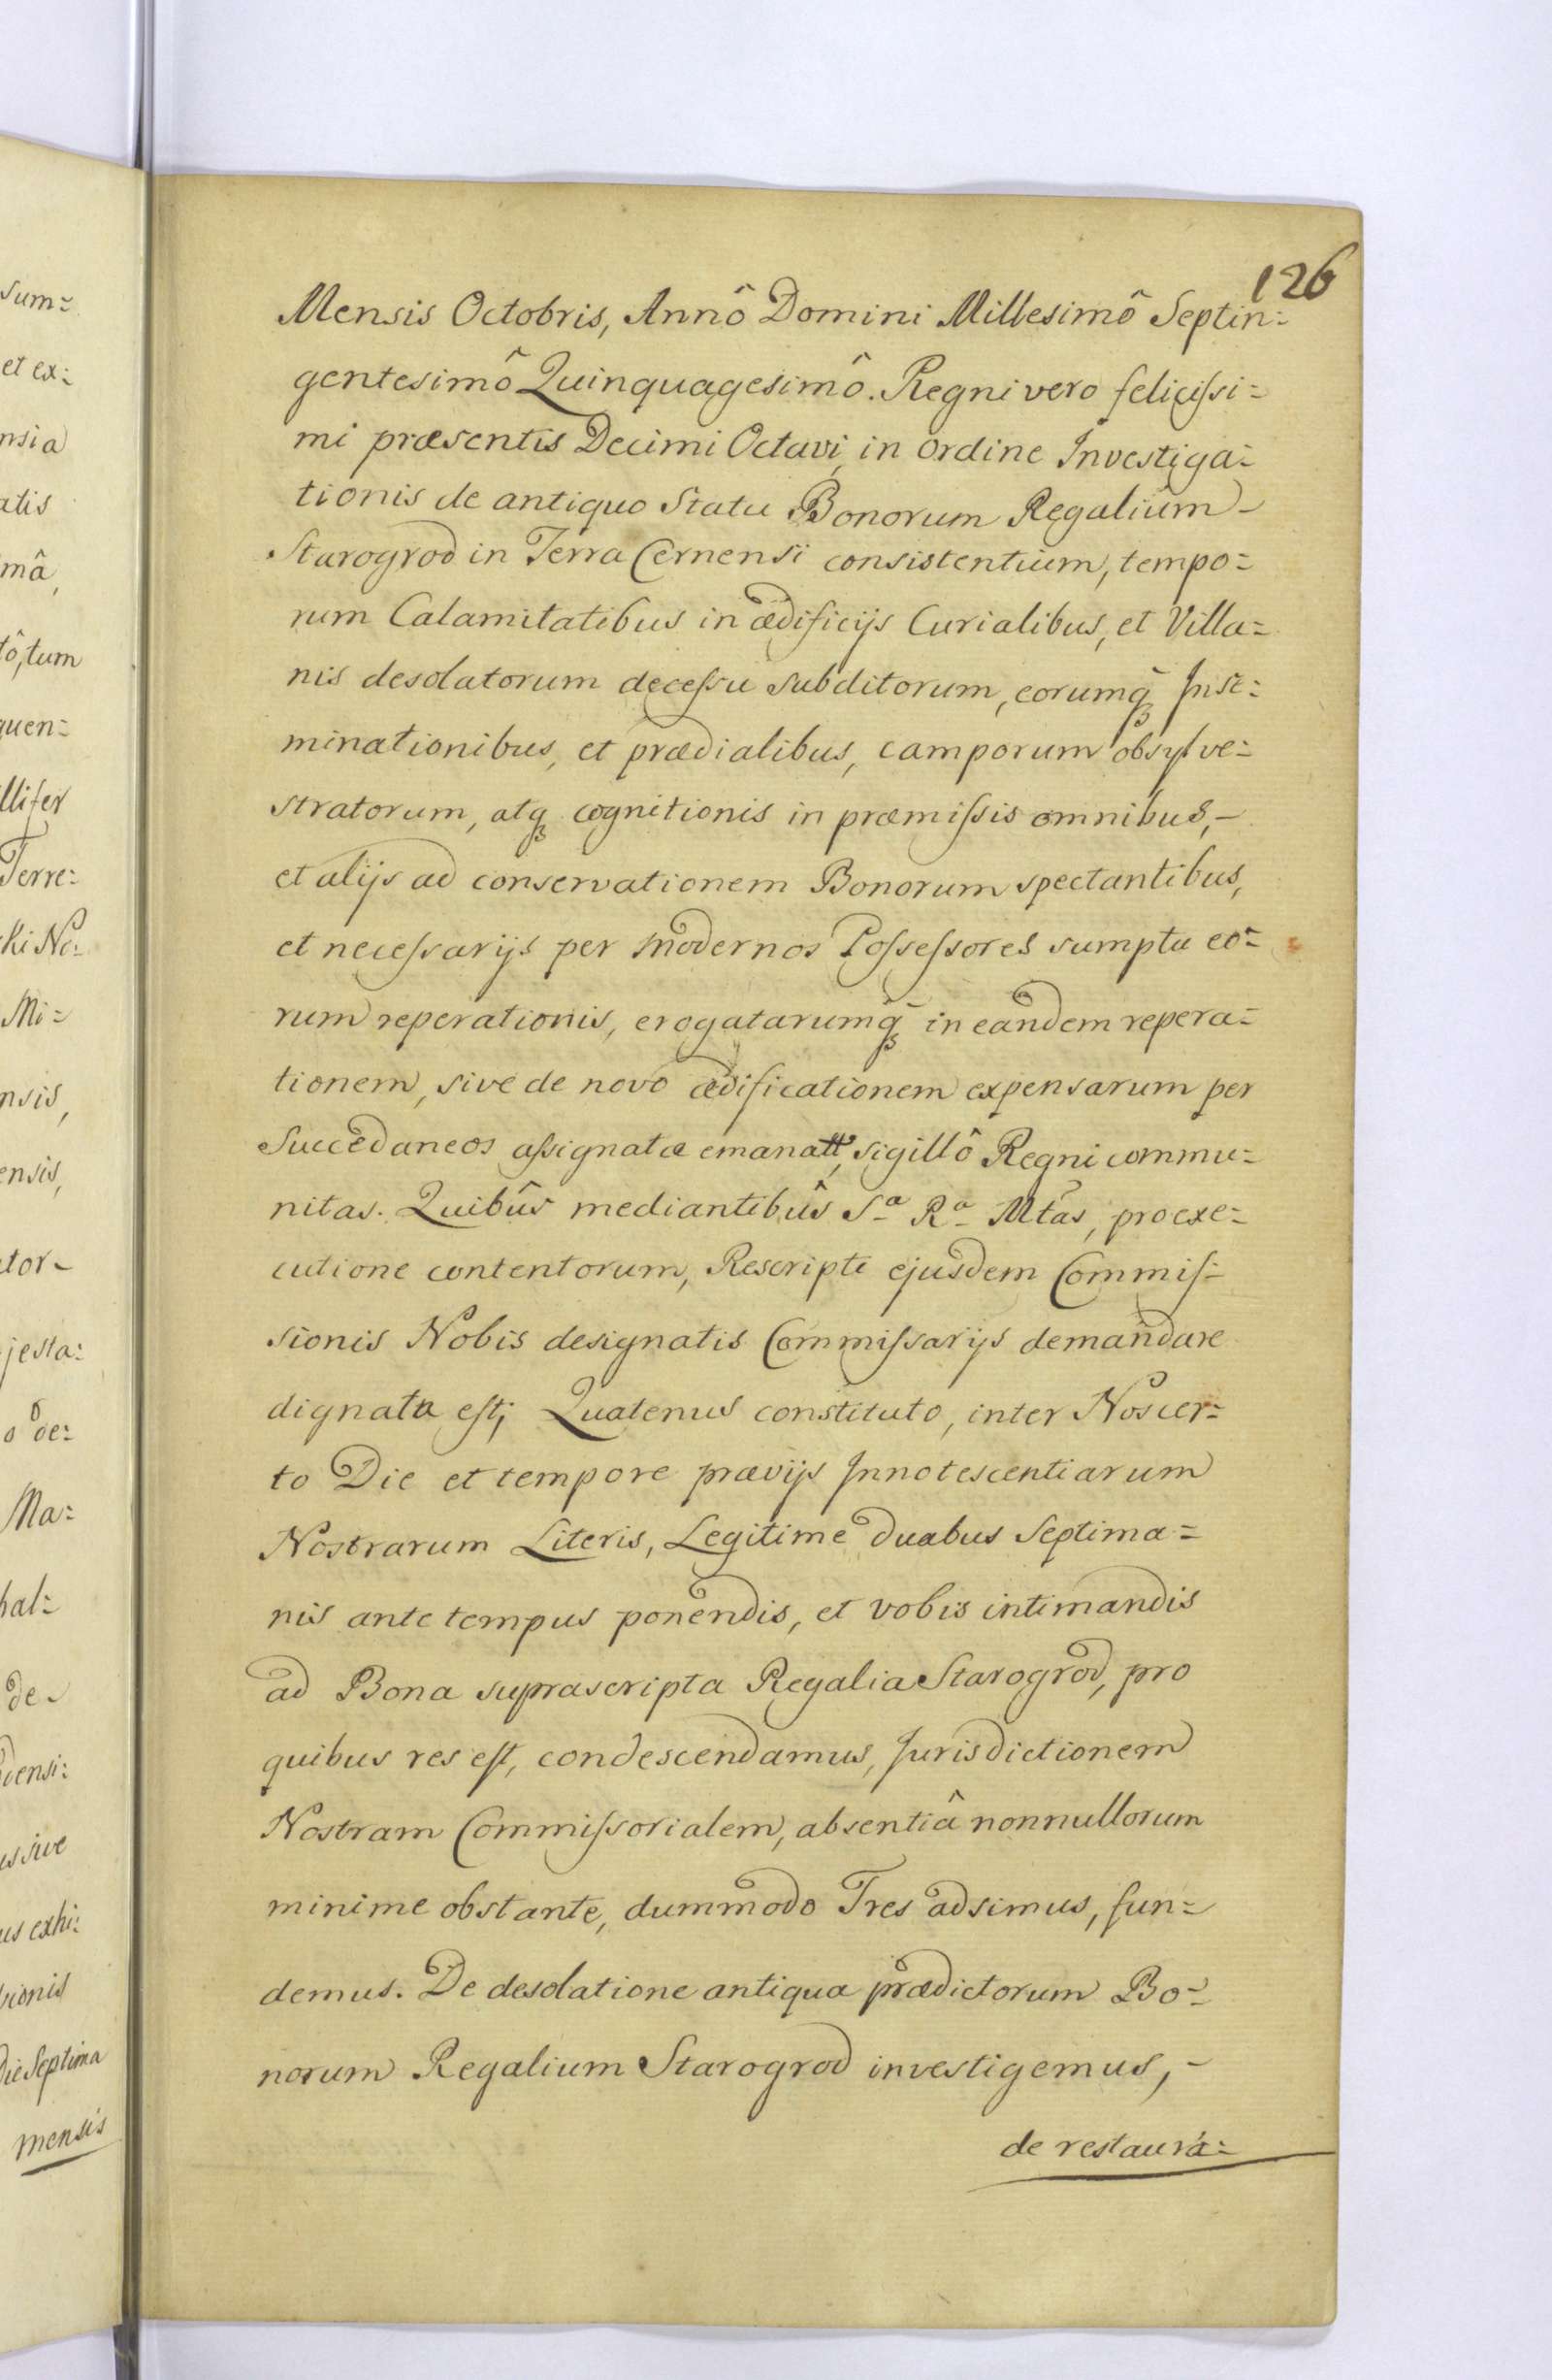 126
Mensis Octobris, Annô Domini Millesimô Septin=
gentesimô Quinquagesimô. Regni vero feliciſsi=
mi præsentis Decimi Octavi, in ordine Investiga=
tionis de antiquo Statu Bonorum Regalium
Starogrod in Terra Cernensi consistentium, tempo=
rum Calamitatibus in ædificijs Curialibus, et Villa=
nis desolatorum deceſsu subditorum, eorumq̃ Inse=
minationibus, et prædialibus, camporum obsylve=
stratorum, atq cognitionis in præmiſsis omnibus,
et alijs ad conservationem Bonorum spectantibus,
et neceſsarijs per modernos Poſseſsores sumptu eo=
rum reperationis, erogatarumq̃ in eandem repera=
tionem, sive de novo ædificationem expensarum per
Succedaneos aſsignatæ emanatt, sigillô Regni commu=
nitas. Quibûs mediantibûs Sª Rª Mtas, pro exe=
cutione contentorum, Rescripti ejusdem Commiſ=
sionis Nobis designatis Commiſsarijs demandare
dignata eſt; Quatenus constituto, inter Nos cer=
to Die et tempore prævijs Innotescentiarum
Nostrarum Literis, Legitime duabus Septima=
nis ante tempus ponendis, et vobis intimandis
ad Bona suprascripta Regalia Starogrod, pro
quibus res eſt, condescendamus, Jurisdictionem
Nostram Commiſsorialem, absentiâ nonnullorum
minime obstante, dummodo Tres adsimus, fun=
demus. De desolatione antiqua prædictorum Bo=
norum Regalium Starogrod investigemus,
de restaura=
sum=
et ex=
nsia
atis
mâ,
tô, tum
quen=
llifer
Terre=
ki No=
Mi=
nsis,
ensis,
ator
jesta=
o de=
Ma=
hal=
de
densi=
us sive
us exhi=
sionis
Die Septima
mensis